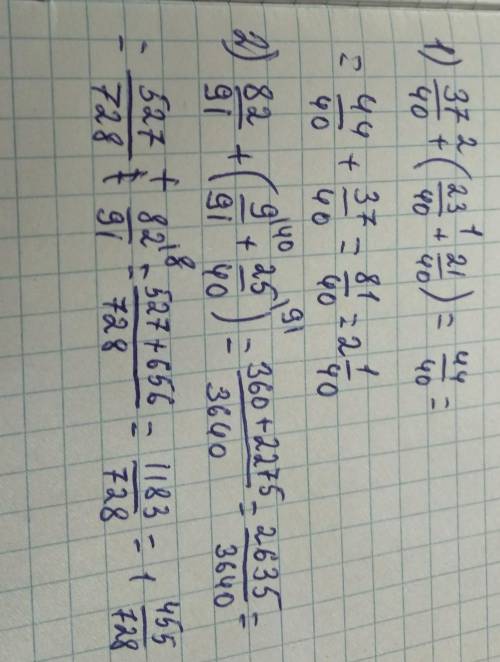 1) 37/40 ² + (23/40 ¹ + 21/40) = 44/40 =
= 44/40 + 37/40 = 81/40 = 2 1/40
2) 82/91 + (9/91 \40 + 25/40 \91) = (360+2275)/3640 = 2635/3640 =
= 527/728 + 82/91 \8 = (527+656)/728 = 1183/728 = 1 455/728